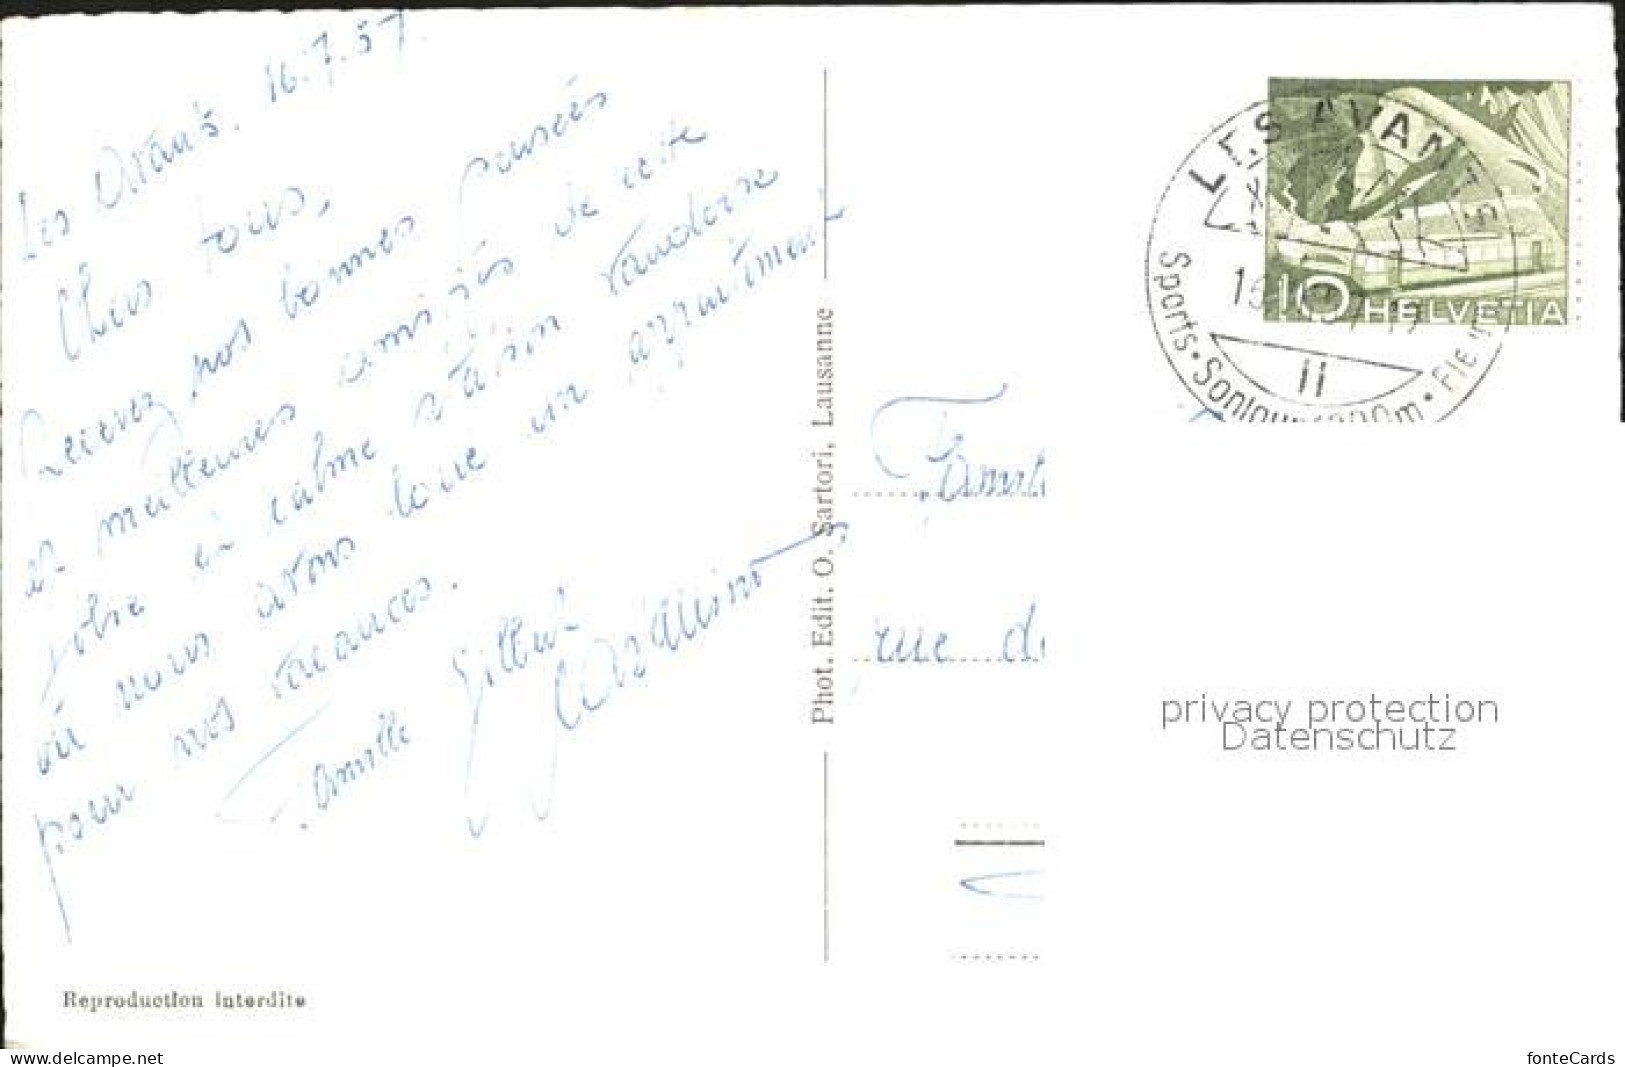 Les Avants. 16.7.57.
Chers tous,
Recevez nos bonnes pensées
et meilleures amitiés de cette
jolie et calme station vaudoise
où nous avons loué un appartement
pour nos vacances.
Famille Gilbert
LES AVANTS
Sports
II
10 HELVETIA
Phot. Edit. O. Sartori, Lausanne
rue
privacy protection
Datenschutz
Reproduction interdite
www.delcampe.net
fonteCards